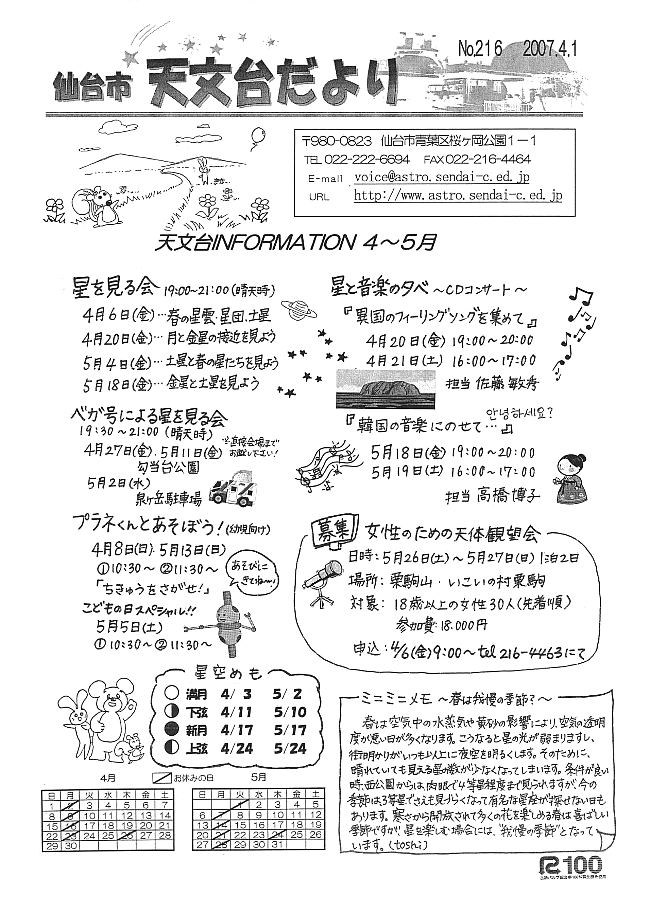 No.216 2007.4.1
仙台市 天文台だより
〒980-0823 仙台市青葉区桜ヶ岡公園1-1
TEL 022-222-6694 FAX 022-216-4464
E-mail voice@astro.sendai-c.ed.jp
URL http://www.astro.sendai-c.ed.jp
天文台INFORMATION 4~5月
星を見る会 19:00~21:00(晴天時)
4月6日(金)…春の星雲・星団、土星
4月20日(金)…月と金星の接近を見よう
5月4日(金)…土星と春の星たちを見よう
5月18日(金)…金星と土星を見よう
ベガ号による星を見る会
19:30~21:00(晴天時)
4月27日(金)、5月11日(金)
※直接会場まで
お越し下さい!
勾当台公園
5月2日(水)
泉ヶ岳駐車場
プラネくんとあそぼう!(幼児向け)
4月8日(日)・5月13日(日)
①10:30~ ②11:30~
「ちきゅうをさがせ!」
こどもの日スペシャル!!
5月5日(土)
①10:30~②11:30~
あそびに
きてね~!
星と音楽の夕べ ~CDコンサート~
『異国のフィーリングソングを集めて』
4月20日(金) 19:00~20:00
4月21日(土) 16:00~17:00
担当 佐藤敏秀
안녕하세요?
『韓国の音楽にのせて…』
5月18日(金) 19:00~20:00
5月19日(土) 16:00~17:00
担当 高橋博子
募集 女性のための天体観望会
日時:5月26日(土)~5月27日(日)1泊2日
場所:栗駒山・いこいの村栗駒
対象:18歳以上の女性30人(先着順)
参加費:18,000円
申込:4/6(金)9:00~tel 216-4463にて
星空めも
満月 4/3 5/2
下弦 4/11 5/10
新月 4/17 5/17
上弦 4/24 5/24
4月 お休みの日 5月
日 月 火 水 木 金 土
1 2 3 4 5 6 7
8 9 10 11 12 13 14
15 16 17 18 19 20 21
22 23 24 25 26 27 28
29 30
日 月 火 水 木 金 土
1 2 3 4 5
6 7 8 9 10 11 12
13 14 15 16 17 18 19
20 21 22 23 24 25 26
27 28 29 30 31
~ミニミニメモ ~春は我慢の季節?~
春は空気中の水蒸気や黄砂の影響により、空気の透明
度が悪い日が多くなります。こうなると星の光が弱まりますし、
街明かりがいつも以上に夜空を明るくします。そのために、
晴れていても見える星の数が少なくなってしまいます。条件が良い
時、西公園からは、肉眼で4等星程度まで見られますが、今の
季節は、3等星でさえも見づらくなって有名な星座が探せない日も
あります。寒さから開放されて多くの花を楽しめる春は喜ばしい
季節ですが、星を楽しむ場合には、"我慢の季節"となって
います。(toshi)
R100